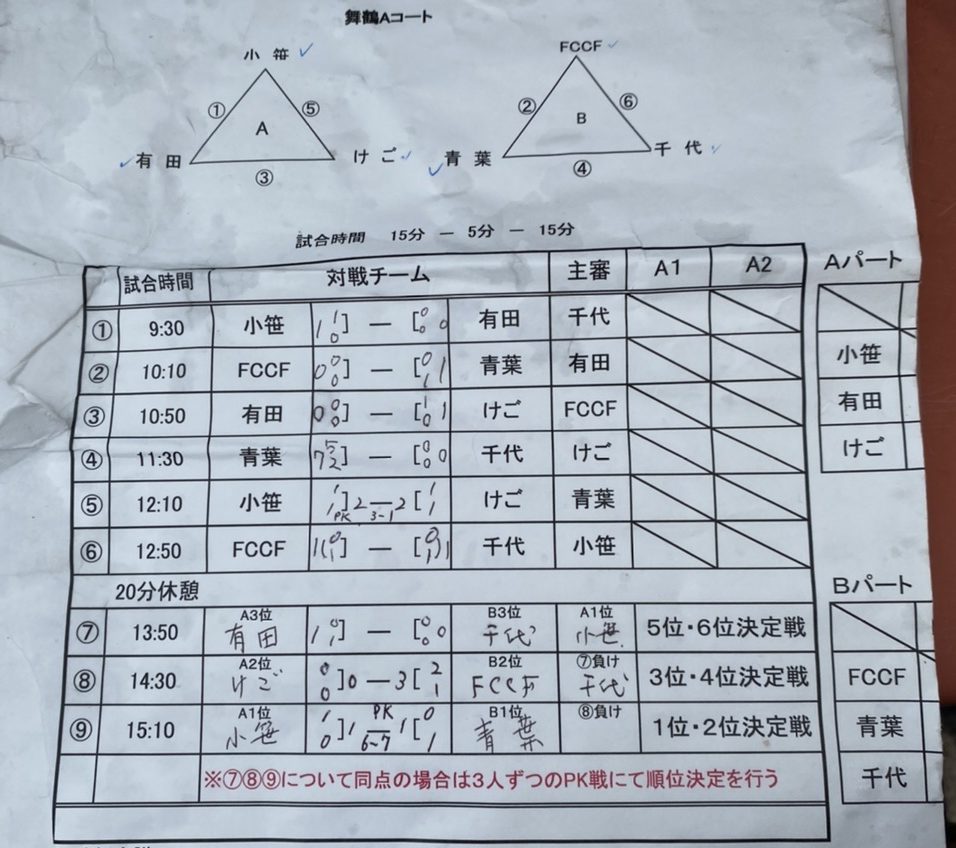 舞鶴Aコート
小 笹 ✓
FCCF ✓
① ⑤
② ⑥
A
B
✓ 有 田 けご ✓
✓ 青 葉 千 代 ✓
③
④
試合時間 15分 － 5分 － 15分
試合時間 対戦チーム 主審 A1 A2
① 9:30 小笹 1 [1 0] ― [0 0] 0 有田 千代
② 10:10 FCCF 0 [0 0] ― [0 1] 1 青葉 有田
③ 10:50 有田 0 [0 0] ― [1 0] 1 けご FCCF
④ 11:30 青葉 7 [5 2] ― [0 0] 0 千代 けご
⑤ 12:10 小笹 1 1] 2 ― 2 [1 1 けご 青葉
PK 3-1
⑥ 12:50 FCCF 1 (0 1] ― [0 1) 1 千代 小笹
20分休憩
⑦ 13:50 A3位 有田 1 [0 1] ― [0 0] 0 B3位 千代 A1位 小笹 5位・6位決定戦
⑧ 14:30 A2位 けご 0 0] 0 ― 3 [2 1 B2位 FCCF ⑦負け 千代 3位・4位決定戦
⑨ 15:10 A1位 小笹 1 0] 1 PK 6-7 1 [0 1 B1位 青葉 ⑧負け 1位・2位決定戦
※⑦⑧⑨について同点の場合は3人ずつのPK戦にて順位決定を行う
Aパート
小笹
有田
けご
Bパート
FCCF
青葉
千代